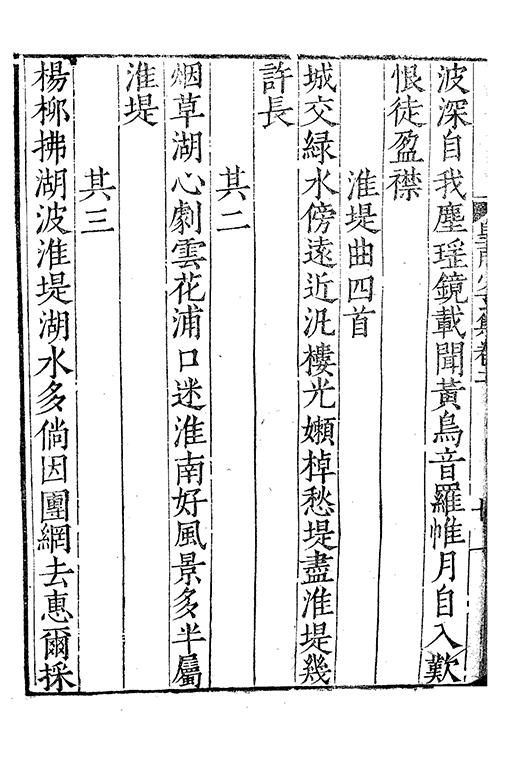 波深自我塵瑶鏡載聞黃鳥音羅帷月自入歎
恨徒盈襟
淮堤曲四首
城交綠水傍遠近汎樓光嬾棹愁堤盡淮堤幾
許長
其二
烟草湖心劇雲花浦口迷淮南好風景多半屬
淮堤
其三
楊栁拂湖波淮堤湖水多倘因團網去惠爾採